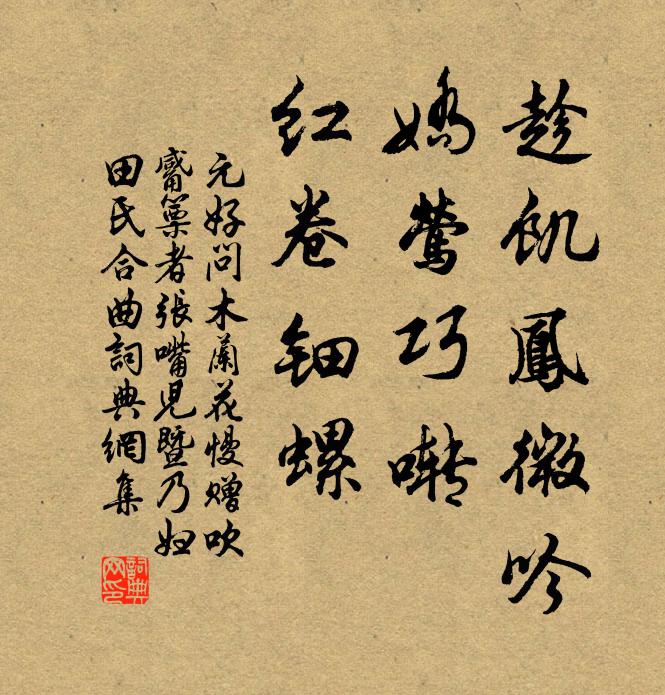 趁飢鳳微吟
嬌鶯巧囀
紅卷鈿螺
元好問木蘭花慢贈吹
觱篥者張嘴兒暨乃妇
田氏合曲詞典網集
詞典网印